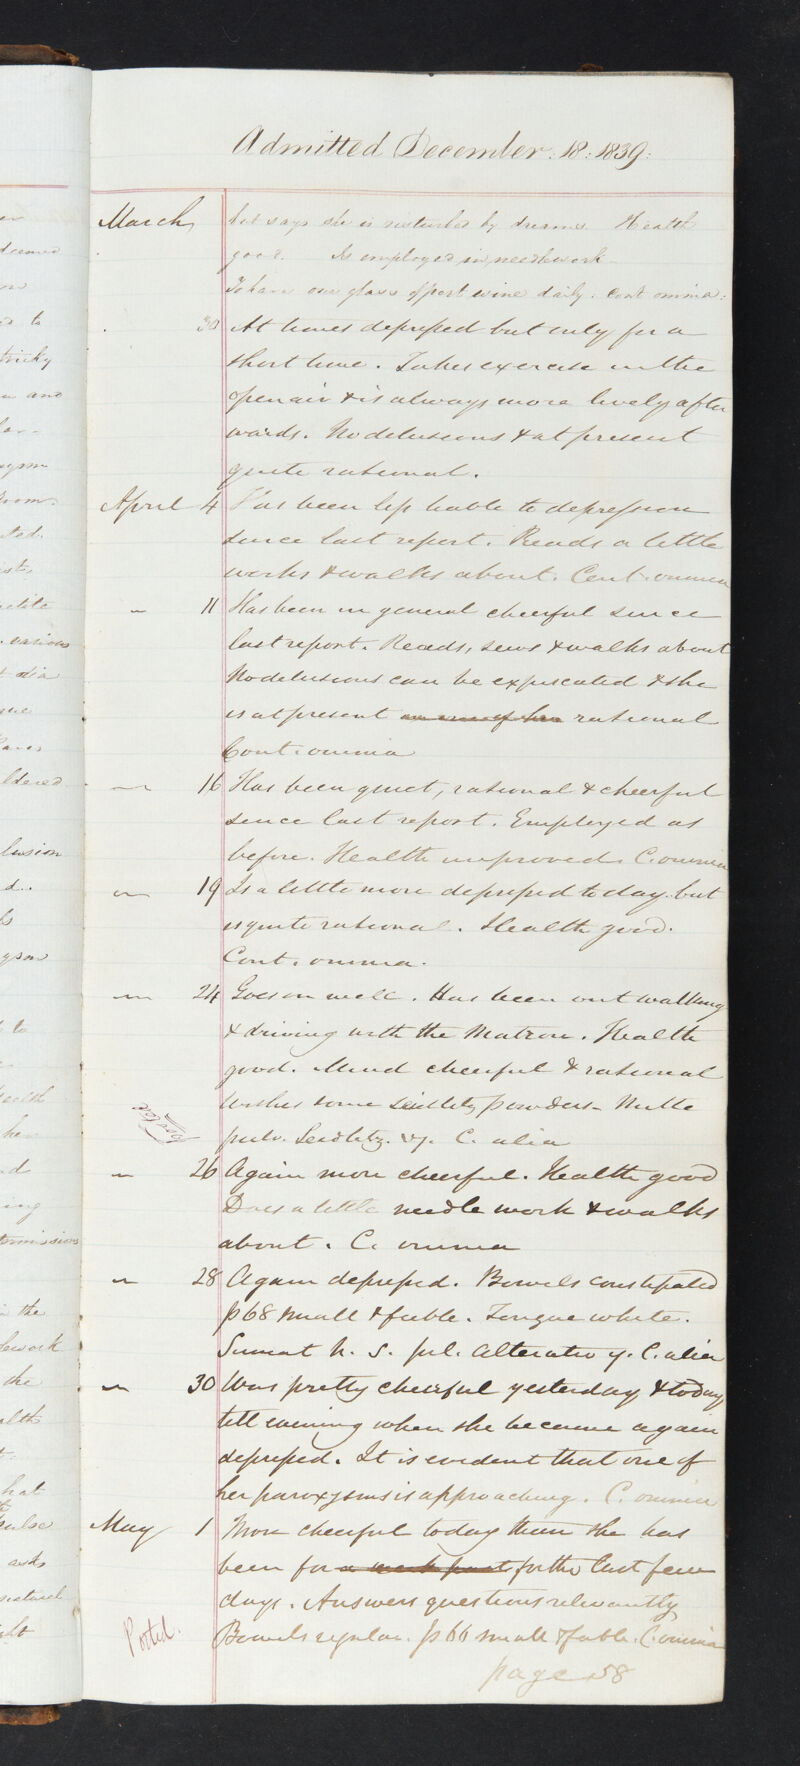 Admitted December. 18. 1839.
March but says she is disturbed by dreams. Health
good. Is employed in needlework
To have one glass of port wine daily. Cont. omnia.
30 At times depressed but only for a
short time. Takes exercise in the
open air & is always more lively after
wards. No delusions & at present
quite rational.
April 4 Has been less liable to depression
since last report. Reads a little
works & walks about. Cont. omnia
" 11 Has been in general cheerful since
last report. Reads, sews & walks about
No delusions can be expiscated & she
is at present rational
Cont. omnia
" 16 Has been quiet, rational & cheerful
since last report. Employed as
before. Health improved. C. omnia
" 19 Is a little more depressed today but
is quite rational. Health good.
Cont. omnia.
" 24 Goes on well. Has been out walking
& driving with the Matron. Health
good. Mind cheerful & rational
Wishes some Seidlitz powders. Mitte
Posted
pulv. Seidlitz. C. alia
" 26 Again more cheerful. Health good
Does a little needle work & walks
about. C. omnia
" 28 Again depressed. Bowels constipated
p 68 small & feeble. Tongue white.
Sumat h. s. pil. C. alia
" 30 Was pretty cheerful yesterday & today
till evening when she became again
depressed. It is evident that one of
her paroxysms is approaching. C. omnia
May 1 More cheerful today than she has
been for a week past for the last few
days. Answers questions relevantly
Posted.
Bowels regular. p 66 small & feeble. C. omnia
page 58